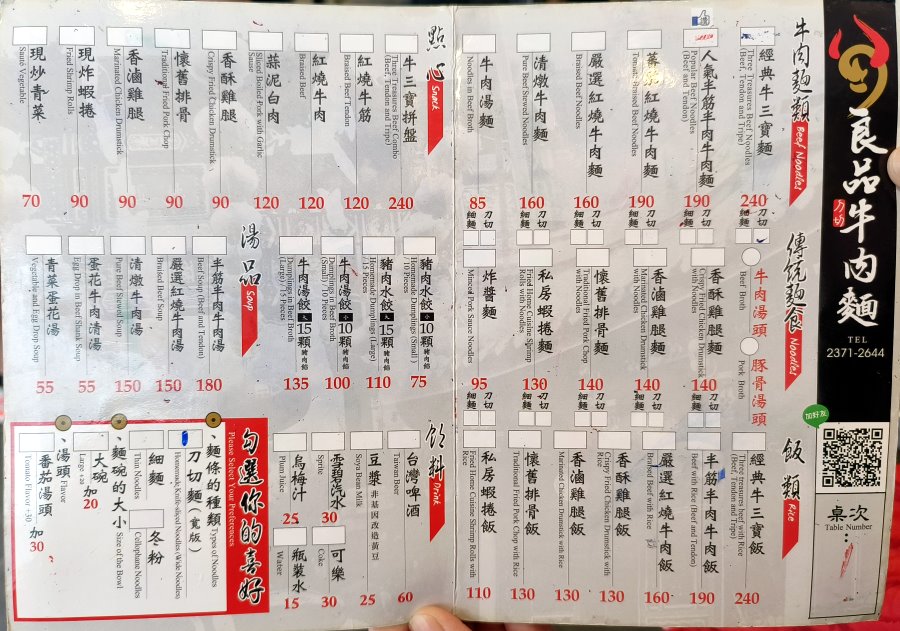 良品牛肉麵
刀切
TEL
2371-2644
加好友
桌次
Table Number
牛肉麵類 Beef Noodles
經典牛三寶麵
Three Treasures Beef Noodles
(Beef, Tendon and Tripe)
240
細麵 刀切
人氣半筋半肉牛肉麵
Popular Beef Noodles
(Beef and Tendon)
190
細麵 刀切
紅燒牛肉麵
Tomato Braised Beef Noodles
190
細麵 刀切
嚴選紅燒牛肉麵
Braised Beef Noodles
160
細麵 刀切
清燉牛肉麵
Pure Beef Stewed Noodles
160
細麵 刀切
牛肉湯麵
Noodles in Beef Broth
85
細麵 刀切
傳統麵食 Noodles
牛肉湯頭
Beef Broth
豚骨湯頭
Pork Broth
香酥雞腿麵
Crispy Fried Chicken Drumstick
with Noodles
140
細麵 刀切
香滷雞腿麵
Marinated Chicken Drumstick
with Noodles
140
細麵 刀切
懷舊排骨麵
Traditional Fried Pork Chop
with Noodles
140
細麵 刀切
私房蝦捲麵
Fried Home Cuisine Shrimp
Rolls with Noodles
130
細麵 刀切
炸醬麵
Minced Pork Sauce Noodles
95
細麵 刀切
飯類 Rice
經典牛三寶飯
Three treasures beef with Rice
(Beef, Tendon and Tripe)
240
半筋半肉牛肉飯
Beef with Rice (Beef and Tendon)
190
嚴選紅燒牛肉飯
Braised Beef with Rice
160
香酥雞腿飯
Crispy Fried Chicken Drumstick with
Rice
130
香滷雞腿飯
Marinated Chicken Drumstick with Rice
130
懷舊排骨飯
Traditional Fried Pork Chop with
Rice
130
私房蝦捲飯
Fried Home Cuisine Shrimp Rolls with
Rice
110
點心 Snack
牛三寶拼盤
Three Treasures Beef Combo
(Beef, Tendon and Tripe)
240
紅燒牛筋
Braised Beef Tendon
120
紅燒牛肉
Braised Beef
120
蒜泥白肉
Sliced Boiled Pork with Garlic
Sauce
120
香酥雞腿
Crispy Fried Chicken Drumstick
90
懷舊排骨
Traditional Fried Pork Chop
90
香滷雞腿
Marinated Chicken Drumstick
90
現炸蝦捲
Fried Shrimp Rolls
90
現炒青菜
Sauté Vegetable
70
豬肉水餃 小 10顆 豬肉餡
Homemade Dumplings (Small)
/10 Pieces
75
豬肉水餃 大 15顆 豬肉餡
Homemade Dumplings (Large)
/15 Pieces
110
牛肉湯餃 小 10顆 豬肉餡
Dumplings in Beef Broth
(Small)/10 Pieces
100
牛肉湯餃 大 15顆 豬肉餡
Dumplings in Beef Broth
(Large)/15 Pieces
135
湯品 Soup
半筋半肉牛肉湯
Beef Soup (Beef and Tendon)
180
嚴選紅燒牛肉湯
Braised Beef Soup
150
清燉牛肉湯
Pure Beef Stewed Soup
150
蛋花牛肉清湯
Egg Drop in Beef Shank Soup
55
青菜蛋花湯
Vegetable and Egg Drop Soup
55
飲料 Drink
台灣啤酒
Taiwan Beer
60
豆漿 非基因改造黃豆
Soya Bean Milk
25
雪碧汽水
Sprite
30
可樂
Coke
30
烏梅汁
Plum Juice
25
瓶裝水
Water
15
勾選你的喜好
Please Select Your Preferences
、麵條的種類 Types of Noodles
刀切麵(寬版)
Homemade Knife-sliced Noodles (Wide Noodles)
細麵
Thin Noodles
冬粉
Cellophane Noodles
、麵碗的大小 Size of the Bowl
大碗 加20
Large +20
、湯頭 Flavor
番茄湯頭 加30
Tomato Flavor +30